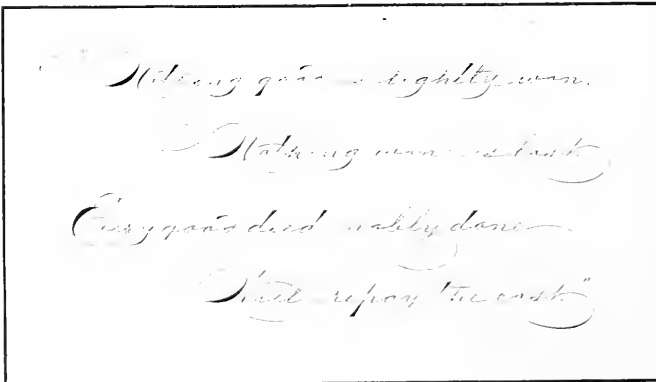 "Nothing good is lightly won.
Nothing won is lost
Every good deed nobly done
Will repay the cost."